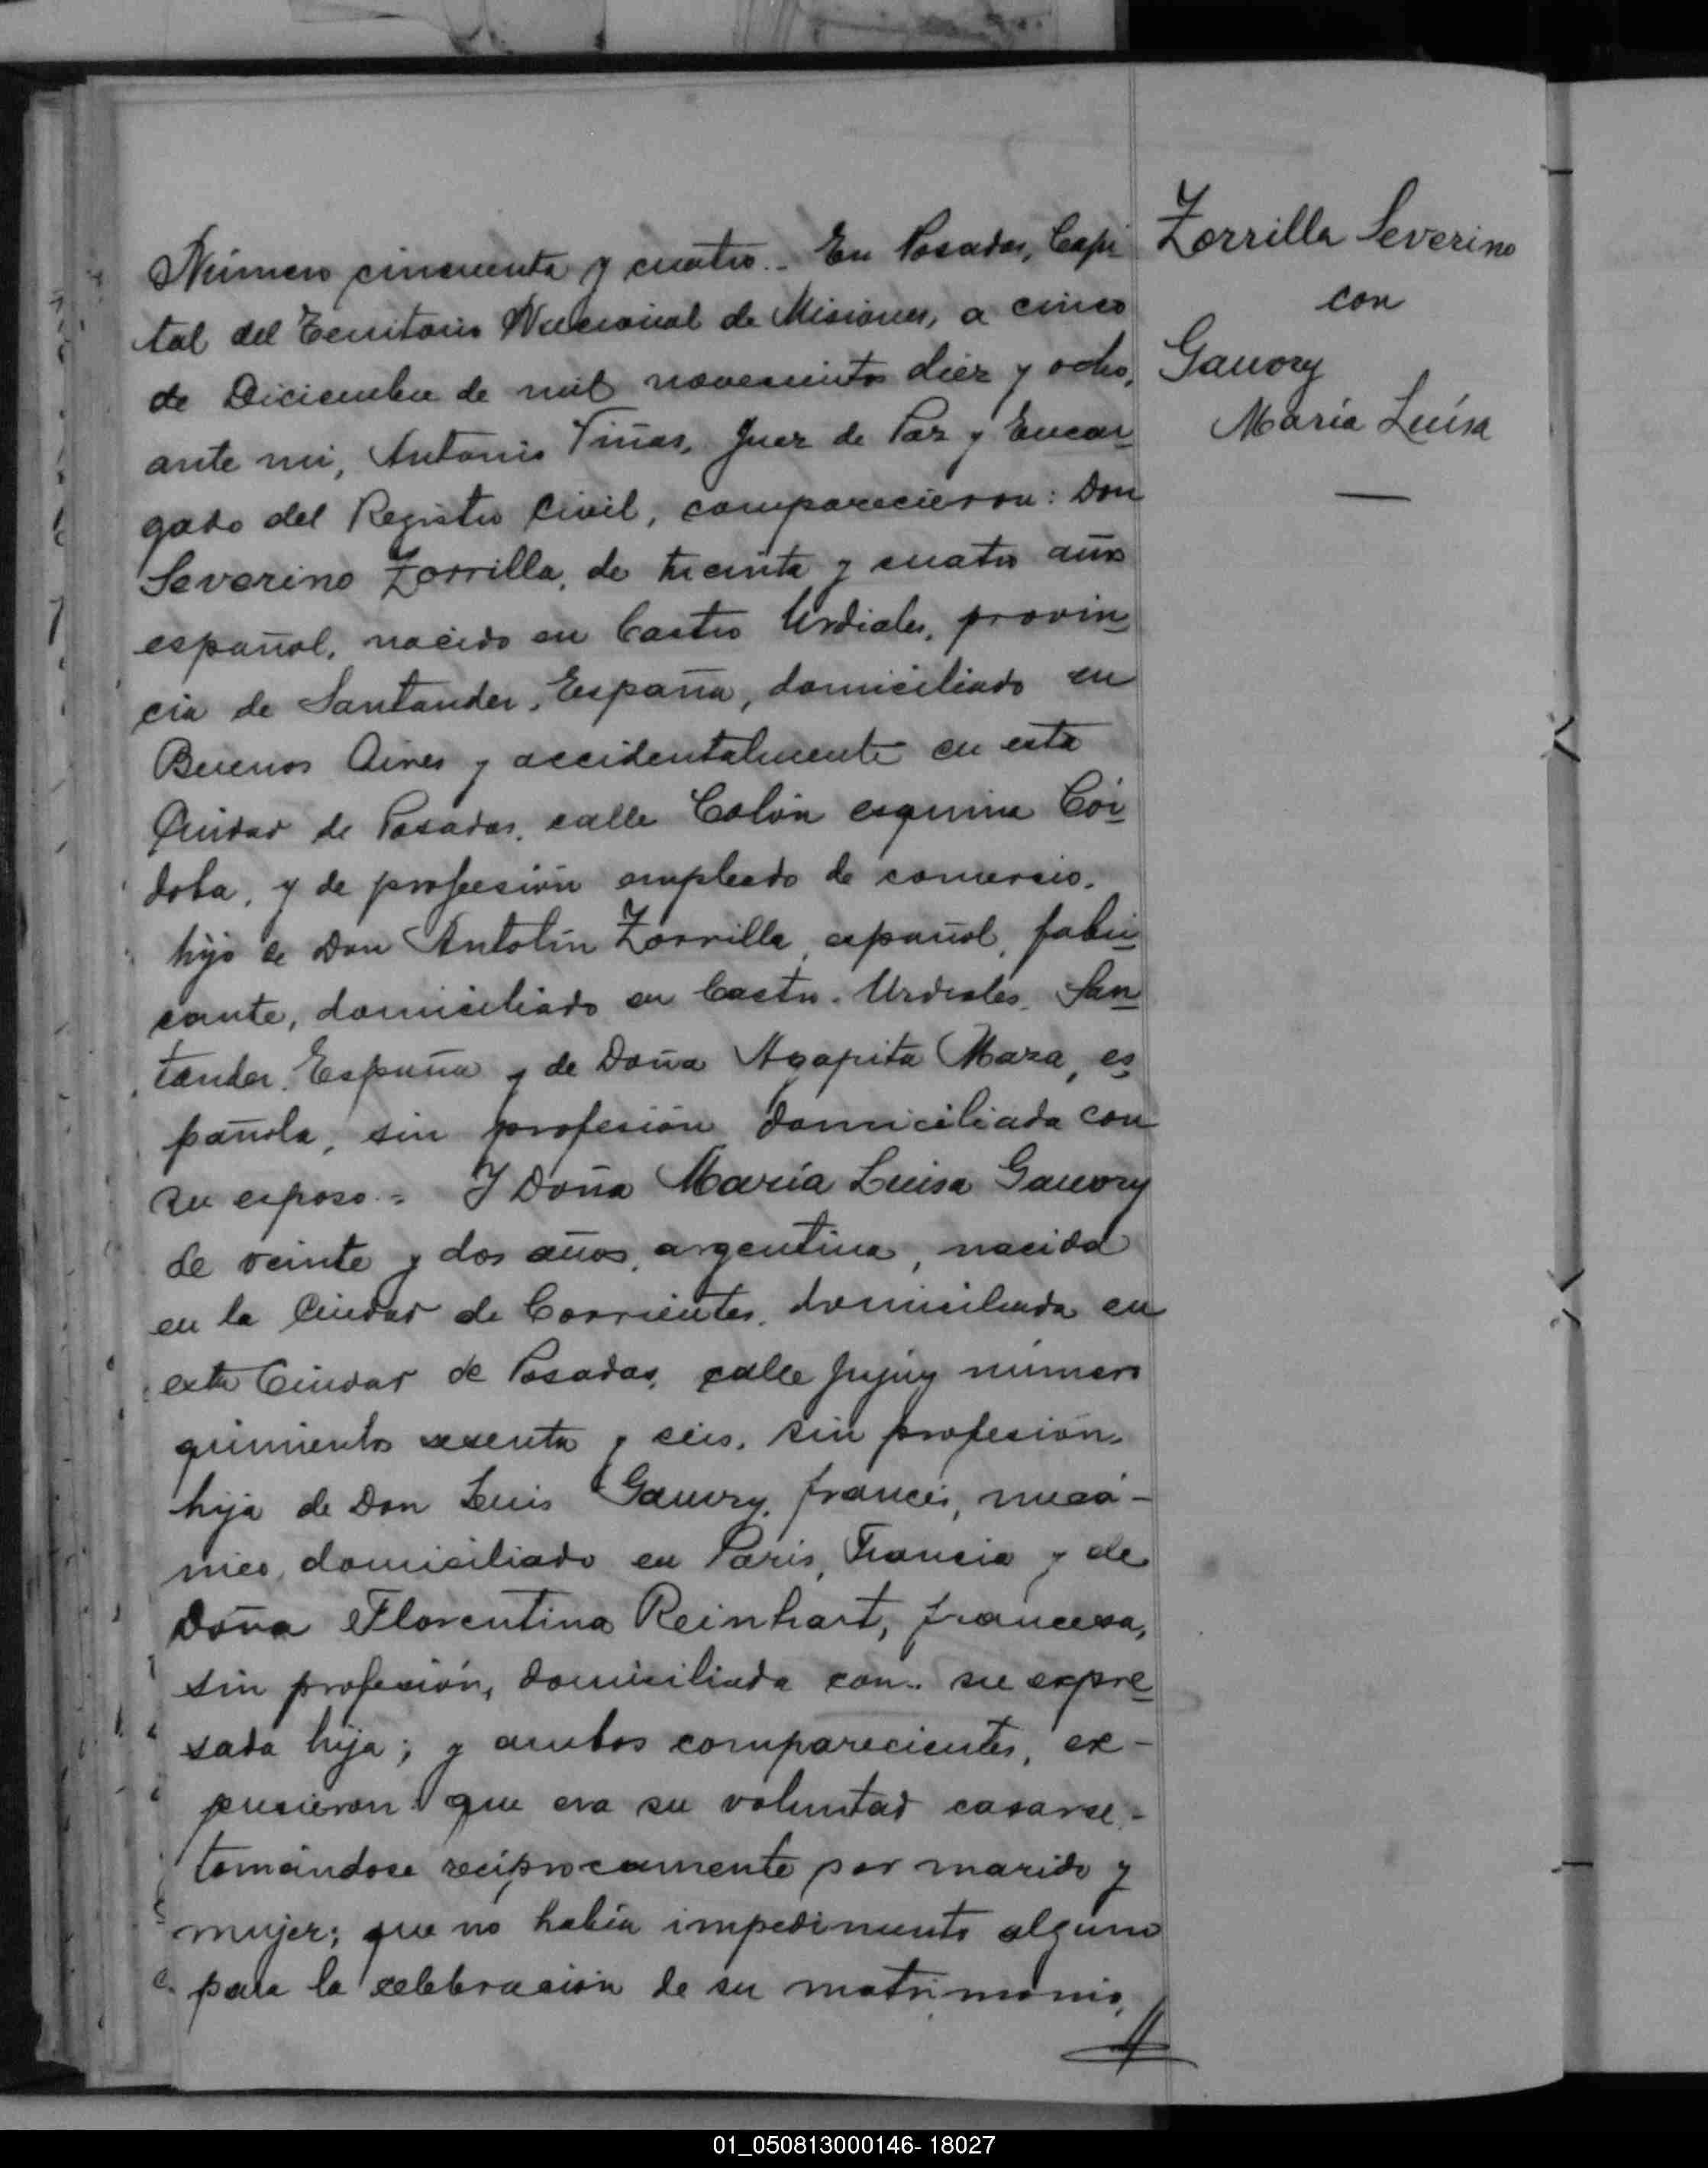 Número cincuenta y cuatro.- En Posadas, Capi
tal del Territorio Nacional de Misiones, a cinco
de Diciembre de mil novecientos diez y ocho,
ante mi, Antonio Viñas, Juez de Paz y Encar
gado del Registro Civil, comparecieron: Don
Severino Zorrilla, de treinta y cuatro años
español, nacido en Castro Urdiales, provin
cia de Santander, España, domiciliado en
Buenos Aires y accidentalmente en esta
Ciudad de Posadas, calle Colón esquina Cór
doba, y de profesión empleado de comercio,
hijo de Don Antolín Zorrilla, español, fabri
cante, domiciliado en Castro-Urdiales, San
tander, España y de Doña Agapita Maza, es
pañola, sin profesión domiciliada con
su esposo.= Y Doña María Luisa Gauvry
de veinte y dos años, argentina, nacida
en la Ciudad de Corrientes, domiciliada en
esta Ciudad de Posadas, calle Jujuy número
quinientos sesenta y seis, sin profesión,
hija de Don Luis Gauvry, francés, mecá-
nico, domiciliado en Paris, Francia y de
Doña Florentina Reinhart, francesa,
sin profesión, domiciliada con su expre
sada hija; y ambos comparecientes, ex-
pusieron: que era su voluntad casarse,-
tomándose recíprocamente por marido y
mujer; que no había impedimento alguno
para la celebración de su matrimonio,
Zorrilla Severino
con
Gauvry
María Luísa
01_050813000146- 18027